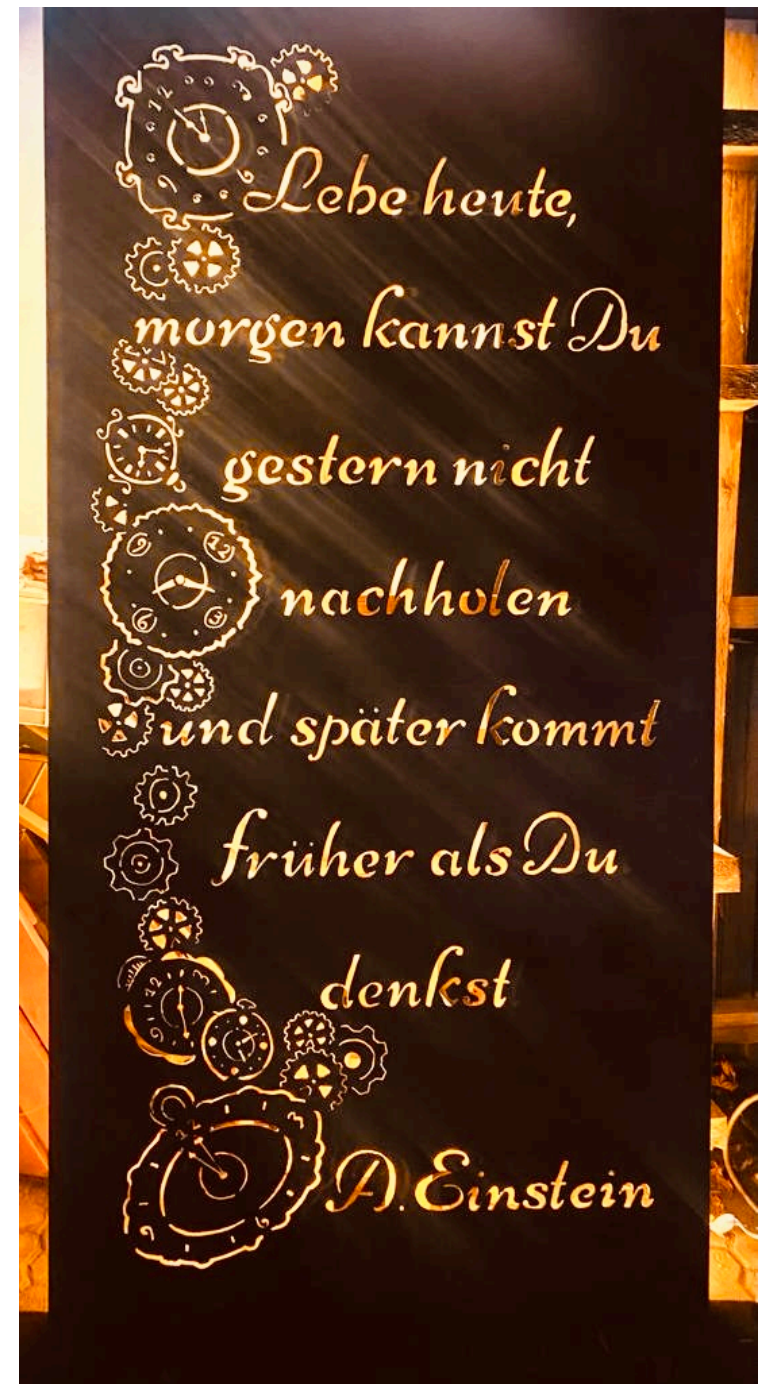 Lebe heute,
morgen kannst Du
gestern nicht
nachholen
und später kommt
früher als Du
denkst
A. Einstein